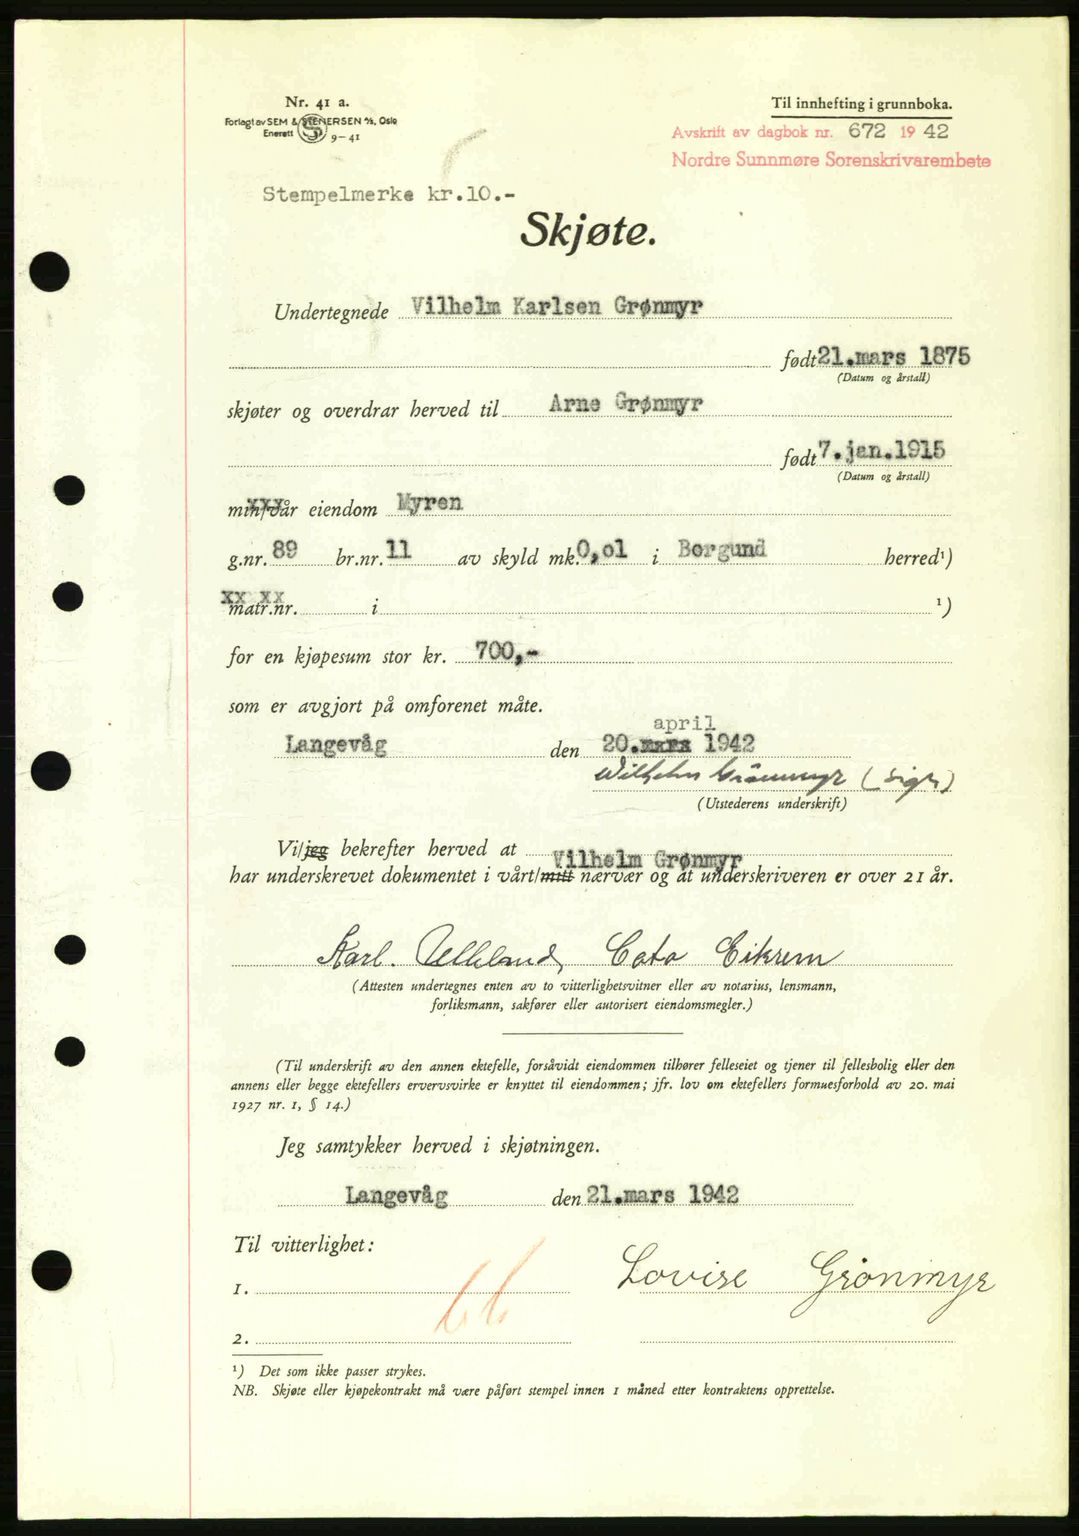 Nr. 41 a.
Forlagt av SEM & STENERSEN A/S, Oslo
Enerett S 9-41
Til innhefting i grunnboka.
Avskrift av dagbok nr. 672 1942
Nordre Sunnmøre Sorenskrivarembete
Stempelmerke kr.10.-
Skjøte.
Undertegnede Vilhelm Karlsen Grønmyr
født 21.mars 1875
(Datum og årstall)
skjøter og overdrar herved til Arne Grønmyr
født 7.jan.1915
(Datum og årstall)
min/vår eiendom Myren
g.nr. 89 br.nr. 11 av skyld mk. 0,01 i Borgund herred¹)
matr.nr. i ¹)
for en kjøpesum stor kr. 700,-
som er avgjort på omforenet måte.
april
Langevåg den 20. mars 1942
Wilhelm Grönmyr (sign)
(Utstederens underskrift)
Vi/jeg bekrefter herved at Vilhelm Grønmyr
har underskrevet dokumentet i vårt/mitt nærvær og at underskriveren er over 21 år.
Karl. Cato Eikrem
(Attesten undertegnes enten av to vitterlighetsvitner eller av notarius, lensmann,
forliksmann, sakfører eller autorisert eiendomsmegler.)
(Til underskrift av den annen ektefelle, forsåvidt eiendommen tilhører felleseiet og tjener til fellesbolig eller den
annens eller begge ektefellers ervervsvirke er knyttet til eiendommen; jfr. lov om ektefellers formuesforhold av 20. mai
1927 nr. 1, § 14.)
Jeg samtykker herved i skjøtningen.
Langevåg den 21.mars 1942
Til vitterlighet:
Lovise Grönmyr
1.
66
2.
¹) Det som ikke passer strykes.
NB. Skjøte eller kjøpekontrakt må være påført stempel innen 1 måned etter kontraktens opprettelse.